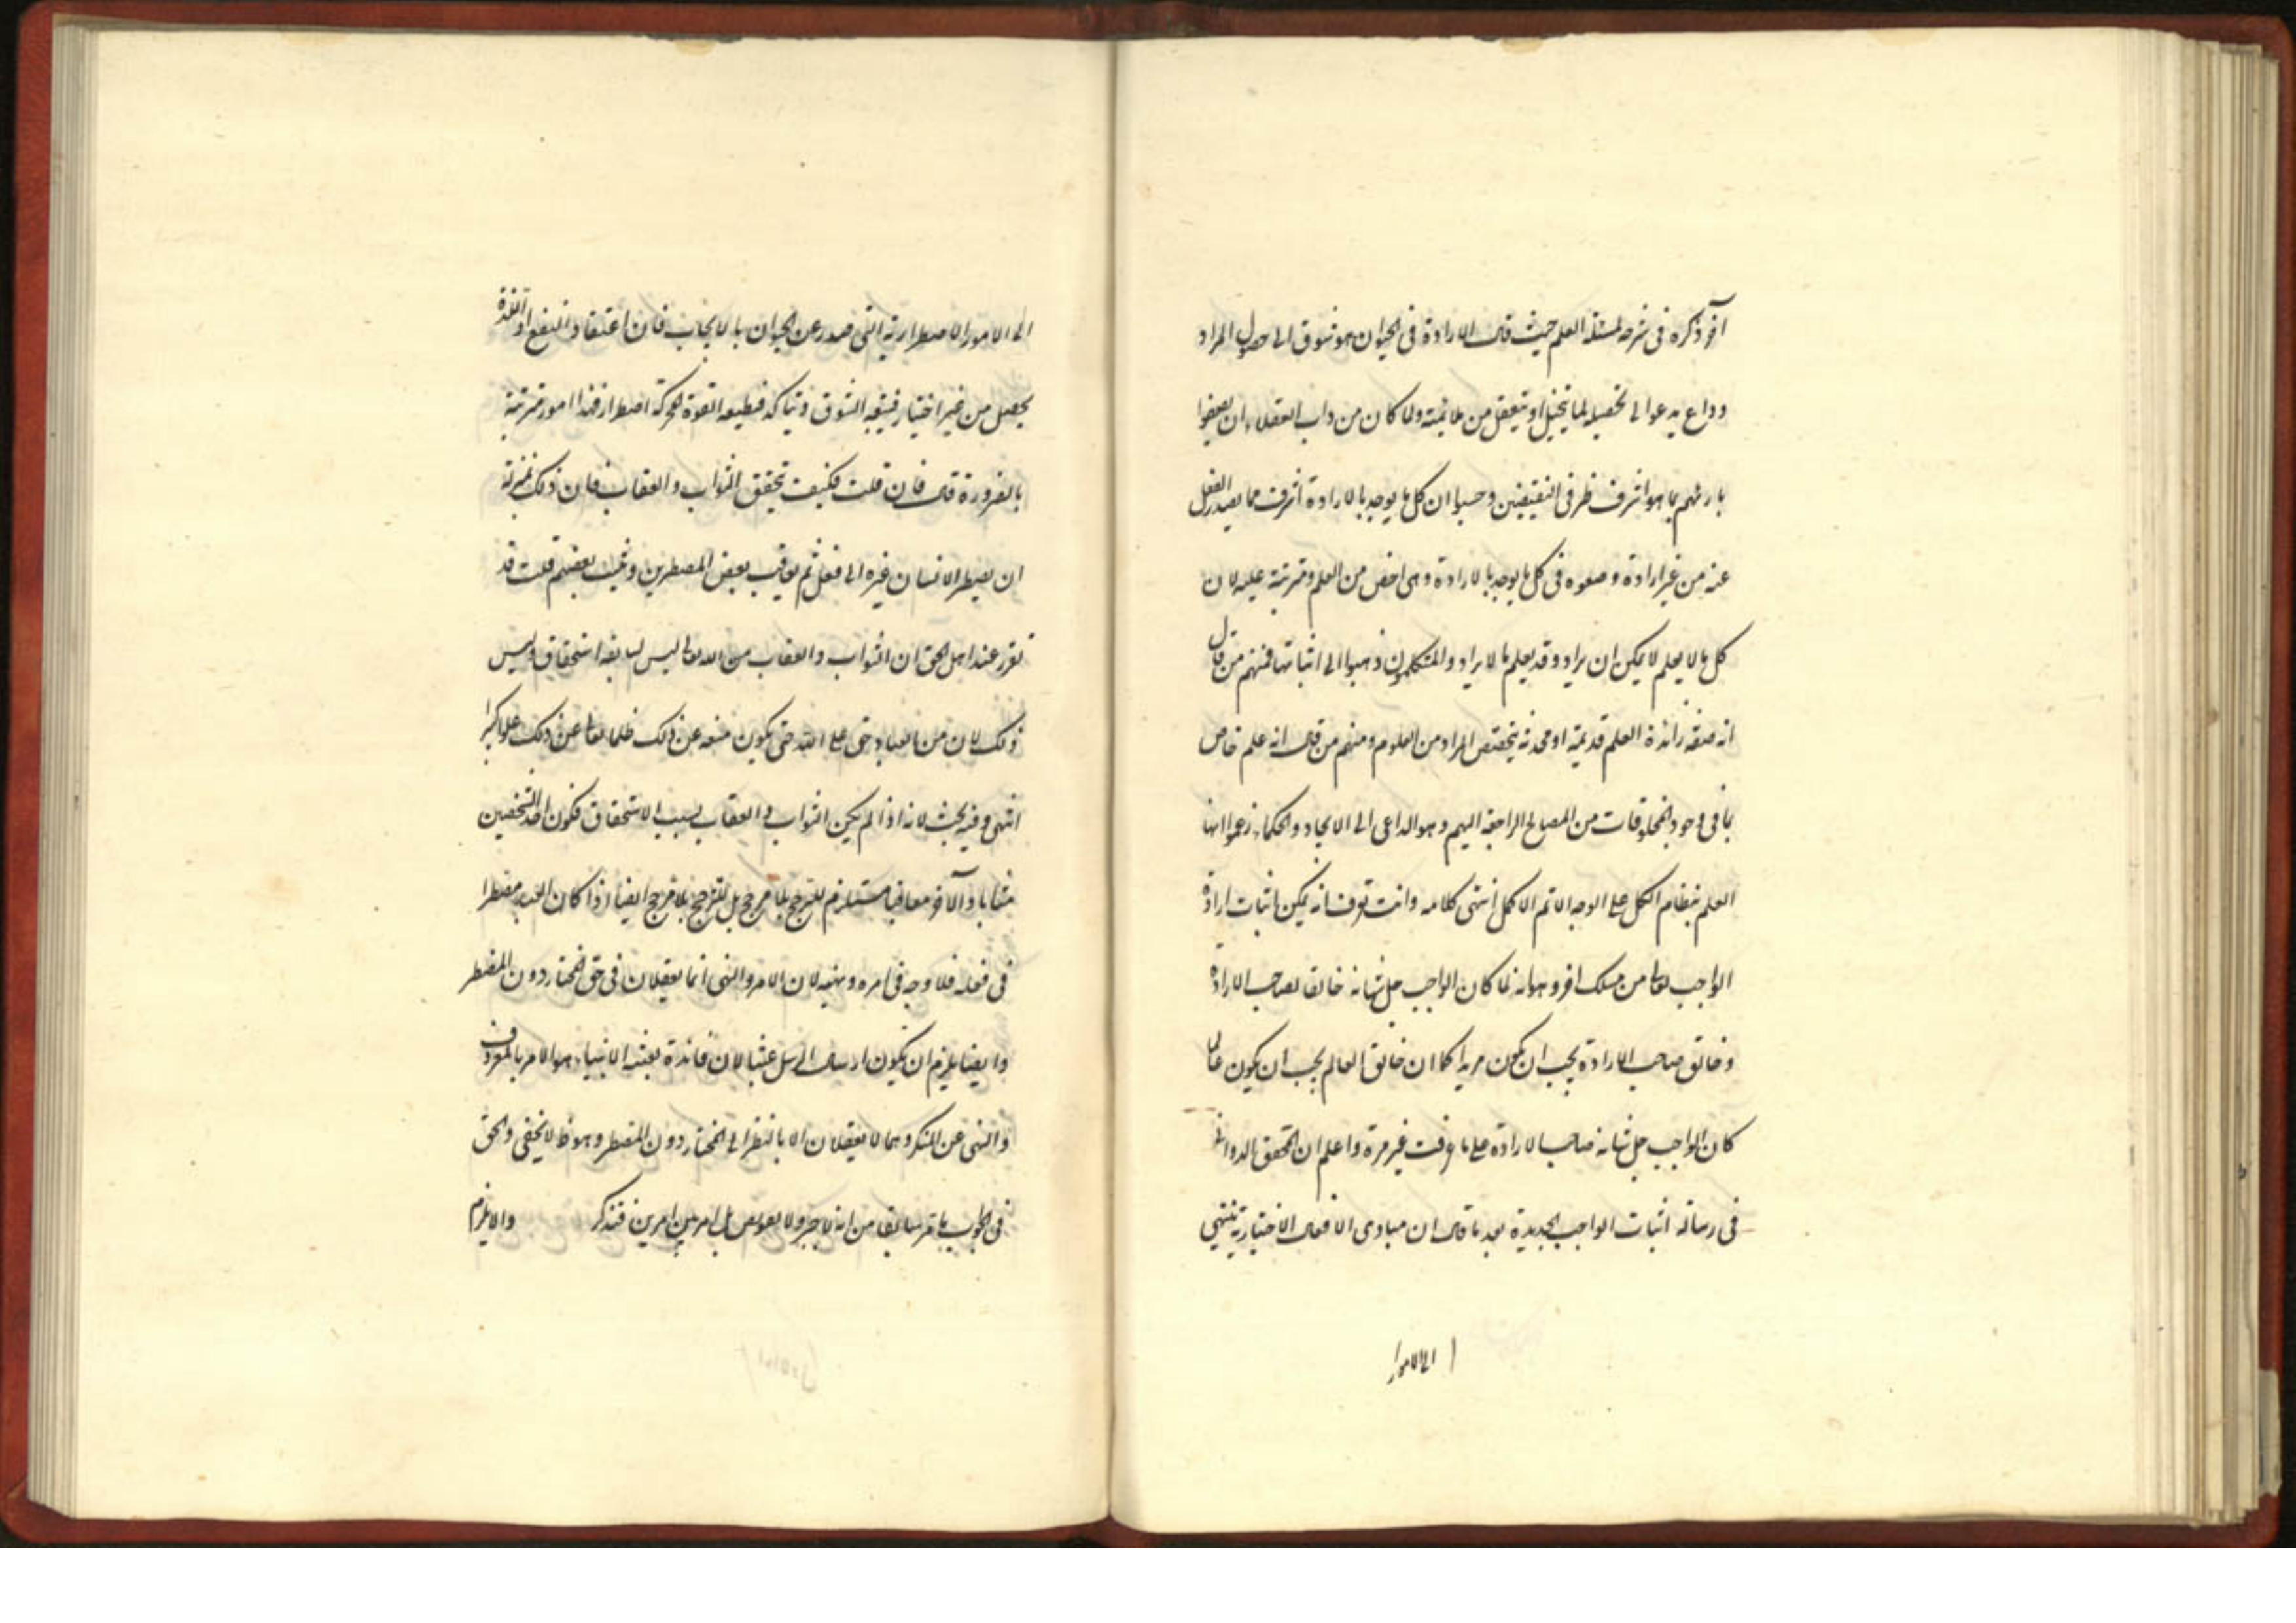 آخر ذكره فى شرحه لمسئلة العلم حيث قال الارادة فى الحيوان هو شوق الى حصول المراد
وداع يدعو الى تحصيله لما يتخيل او يتعقل من ملائمته ولما كان من داب العقلاء ان يصفوا
بارئهم بما هو اشرف طرفى النقيضين وحسبوا ان كل ما يوجد بالارادة اشرف مما يصدر الفعل
عنه من غير ارادة وصفوه فى كل ما يوجد بالارادة وهى اخص من العلم ومترتبة عليه لان
كل ما لا يعلم لا يمكن ان يراد وقد يعلم ما لا يراد والمتكلمون ذهبوا الى اثباتها فمنهم من قال
انه صفة زائدة العلم قديمة او محدثة يتخصص المراد من المعلوم ومنهم من قال انه علم خاص
بما فى وجود المخلوقات من المصالح الراجعة اليهم وهو الداعى الى الايجاد والحكماء زعموا انها
العلم بنظام الكل على الوجه الاتم الاكمل انتهى كلامه وانت تعرف انه يمكن اثبات ارادة
الواجب تعالى من مسلك اخر وهو انه لما كان الواجب جل شانه خالقا لصاحب الارادة
وخالق صاحب الارادة يجب ان يكون مريدا كما ان خالق العالم يجب ان يكون عالما
كان الواجب جل شانه صاحب الارادة على ما عرفت غير مرة واعلم ان المحقق الدوانى
فى رسالة اثبات الواجب الجديدة بعد ما قال ان مبادى الافعال الاختيارية تنتهى
الى الامور ا
الى الامور الاضطرارية التى تصدر عن الحيوان بالايجاب فان اعتقاد النفع او اللذة
يحصل من غير اختيار فيتبعه الشوق ويتاكد فيطيعه القوة المحركة اضطرارا فهذا امور مترتبة
بالضرورة قال فان قلت فكيف تحقق الثواب والعقاب فان ذلك بمنزلة
ان يضطر الانسان غيره الى فعل ثم يعاقب بعض المضطرين ويثيب بعضهم قلت قد
تقرر عند اهل الحق ان الثواب والعقاب من الله تعالى ليس لسابقة استحقاق وليس
ذلك لان من العباد حق على الله حتى يكون منعه عن ذلك ظلما تعالى عن ذلك علوا كبيرا
انتهى وفيه بحث لانه اذا لم يكن الثواب والعقاب بسبب الاستحقاق فكون احد الشخصين
مثابا والاخر معاقبا مستلزم للترجيح بلا مرجح بل للترجح بلا مرجح ايضا اذا كان العبد مضطرا
فى فعله فلا وجه فى امره ونهيه لان الامر والنهى انما يعقلان فى حق المختار دون المضطر
وايضا يلزم ان يكون ارسال الرسل عبثا لان فائدة بعثة الانبياء هو الامر بالمعروف
والنهى عن المنكر وهما لا يعقلان الا بالنظر الى المختار دون المضطر وهو ظ لا يخفى والحق
فى الجواب ما مر سابقا من انه لا جبر ولا تفويض بل امر بين امرين فتذكر والا يلزم